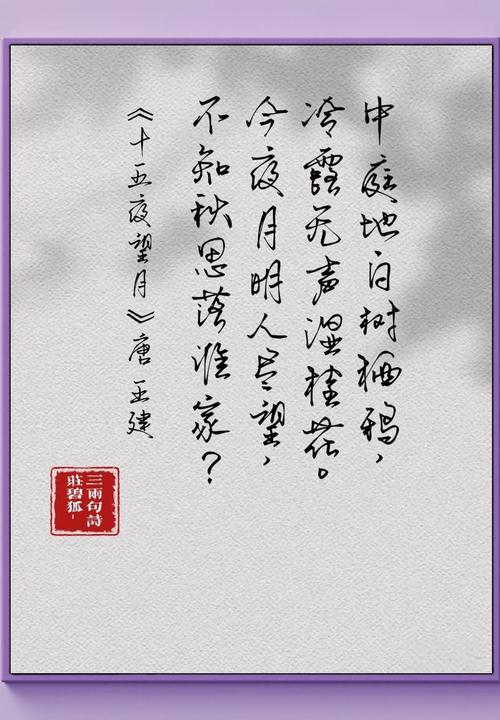 中庭地白树栖鸦，
冷露无声湿桂花。
今夜月明人尽望，
不知秋思落谁家？
《十五夜望月》唐 王建
三两句诗
莊碧狐